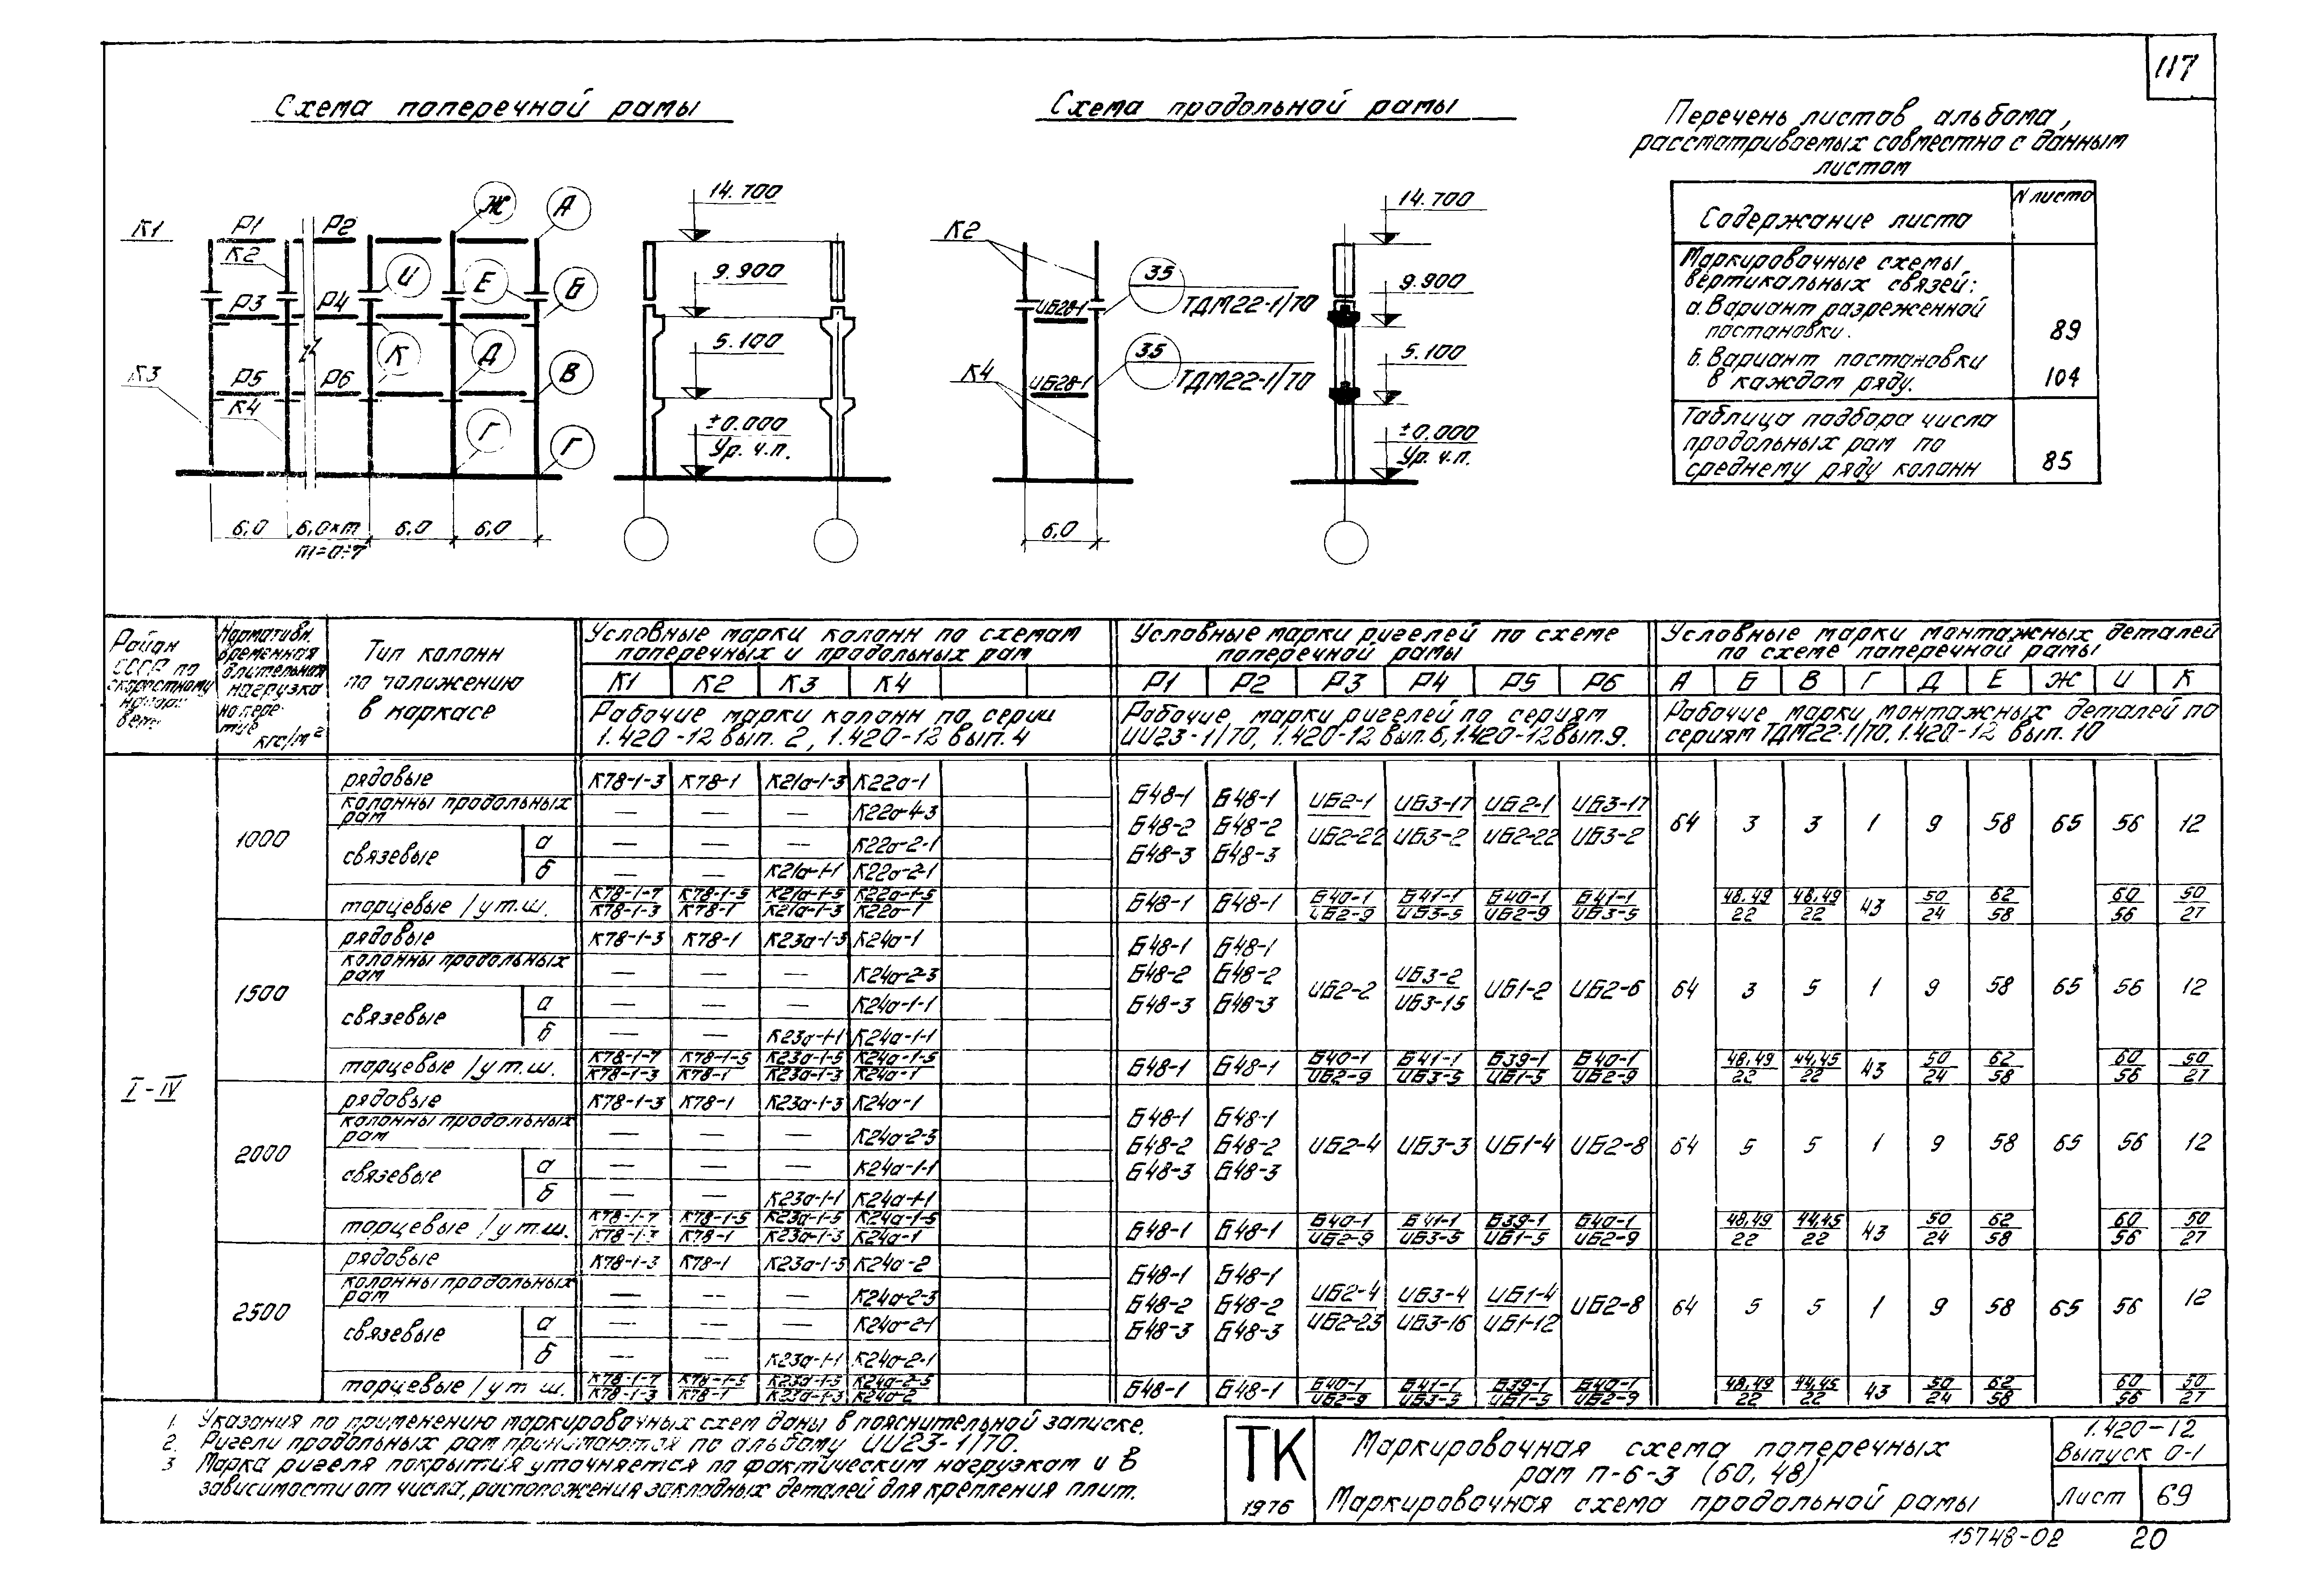 117
Схема поперечной рамы
Схема продольной рамы
Перечень листов альбома,
рассматриваемых совместно с данным
листом
Содержание листа N листа
Маркировочные схемы
вертикальных связей:
а. Вариант разреженной
постановки. 89
б. Вариант постановки
в каждом ряду. 104
Таблица подбора числа
продольных рам по
среднему ряду колонн 85
К1 Р1 Р2 Ж А
К2 И Е Б
Р3 Р4
К Д В
К3 Р5 Р6
К4 Г Г
6,0 6,0хm 6,0 6,0
m=0÷7
14.700
9.900
5.100
±0.000
Ур. ч.п.
К2 35
ИБ28-1 ТДМ22-1/70
35
К4 ИБ28-1 ТДМ22-1/70
6,0
14.700
9.900
5.100
±0.000
Ур. ч.п.
Район СССР по скоростному напору ветра
Нормативн. временная длительная нагрузка на перекрытие кгс/м²
Тип колонн по положению в каркасе
Условные марки колонн по схемам
поперечных и продольных рам
К1 К2 К3 К4
Рабочие марки колонн по серии
1.420-12 вып. 2, 1.420-12 вып. 4
Условные марки ригелей по схеме
поперечной рамы
Р1 Р2 Р3 Р4 Р5 Р6
Рабочие марки ригелей по сериям
ИИ23-1/70, 1.420-12 вып. 6, 1.420-12 вып. 9.
Условные марки монтажных деталей
по схеме поперечной рамы
А Б В Г Д Е Ж И К
Рабочие марки монтажных деталей по
сериям ТДМ22-1/70, 1.420-12 вып. 10
I-IV
1000
рядовые К78-1-3 К78-1 К21а-1-3 К22а-1
колонны продольных рам — — — К22а-4-3
связевые а — — — К22а-2-1
б — — К21а-1-1 К22а-2-1
Б48-1 Б48-1 ИБ2-1 ИБ3-17 ИБ2-1 ИБ3-17
Б48-2 Б48-2
Б48-3 Б48-3 ИБ2-22 ИБ3-2 ИБ2-22 ИБ3-2
64 3 3 1 9 58 65 56 12
торцевые / у т.ш. К78-1-7/К78-1-3 К78-1-5/К78-1 К21а-1-5/К21а-1-3 К22а-1-5/К22а-1 Б48-1 Б48-1 Б40-1/ИБ2-9 Б41-1/ИБ3-5 Б40-1/ИБ2-9 Б41-1/ИБ3-5 48,49/22 48,49/22 43 50/24 62/58 60/56 50/27
1500
рядовые К78-1-3 К78-1 К23а-1-3 К24а-1
колонны продольных рам — — — К24а-2-3
связевые а — — — К24а-1-1
б — — К23а-1-1 К24а-1-1
Б48-1 Б48-1
Б48-2 Б48-2 ИБ2-2 ИБ3-2/ИБ3-15 ИБ1-2 ИБ2-6
Б48-3 Б48-3
64 3 5 1 9 58 65 56 12
торцевые / у т.ш. К78-1-7/К78-1-3 К78-1-5/К78-1 К23а-1-5/К23а-1-3 К24а-1-5/К24а-1 Б48-1 Б48-1 Б40-1/ИБ2-9 Б41-1/ИБ3-5 Б39-1/ИБ1-5 Б40-1/ИБ2-9 48,49/22 44,45/22 43 50/24 62/58 60/56 50/27
2000
рядовые К78-1-3 К78-1 К23а-1-3 К24а-1
колонны продольных рам — — — К24а-2-3
связевые а — — — К24а-1-1
б — — К23а-1-1 К24а-1-1
Б48-1 Б48-1
Б48-2 Б48-2 ИБ2-4 ИБ3-3 ИБ1-4 ИБ2-8
Б48-3 Б48-3
64 5 5 1 9 58 65 56 12
торцевые / у т.ш. К78-1-7/К78-1-3 К78-1-5/К78-1 К23а-1-5/К23а-1-3 К24а-1-5/К24а-1 Б48-1 Б48-1 Б40-1/ИБ2-9 Б41-1/ИБ3-5 Б39-1/ИБ1-5 Б40-1/ИБ2-9 48,49/22 44,45/22 43 50/24 62/58 60/56 50/27
2500
рядовые К78-1-3 К78-1 К23а-1-3 К24а-2
колонны продольных рам — — — К24а-2-3
связевые а — — — К24а-2-1
б — — К23а-1-1 К24а-2-1
Б48-1 Б48-1 ИБ2-4 ИБ3-4 ИБ1-4
Б48-2 Б48-2 ИБ2-8
Б48-3 Б48-3 ИБ2-23 ИБ3-16 ИБ1-12
64 5 5 1 9 58 65 56 12
торцевые / у т ш. К78-1-7/К78-1-3 К78-1-5/К78-1 К23а-1-5/К23а-1-3 К24а-2-5/К24а-2 Б48-1 Б48-1 Б40-1/ИБ2-9 Б41-1/ИБ3-5 Б39-1/ИБ1-5 Б40-1/ИБ2-9 48,49/22 44,45/22 43 50/24 62/58 60/56 50/27
1. Указания по применению маркировочных схем даны в пояснительной записке.
2. Ригели продольных рам принимаются по альбому ИИ23-1/70.
3 Марка ригеля покрытия уточняется по фактическим нагрузкам и в
зависимости от числа, расположения закладных деталей для крепления плит.
ТК
1976
Маркировочная схема поперечных
рам п-6-3 (60, 48)
Маркировочная схема продольной рамы
1.420-12
Выпуск 0-1
Лист 69
15748-02 20